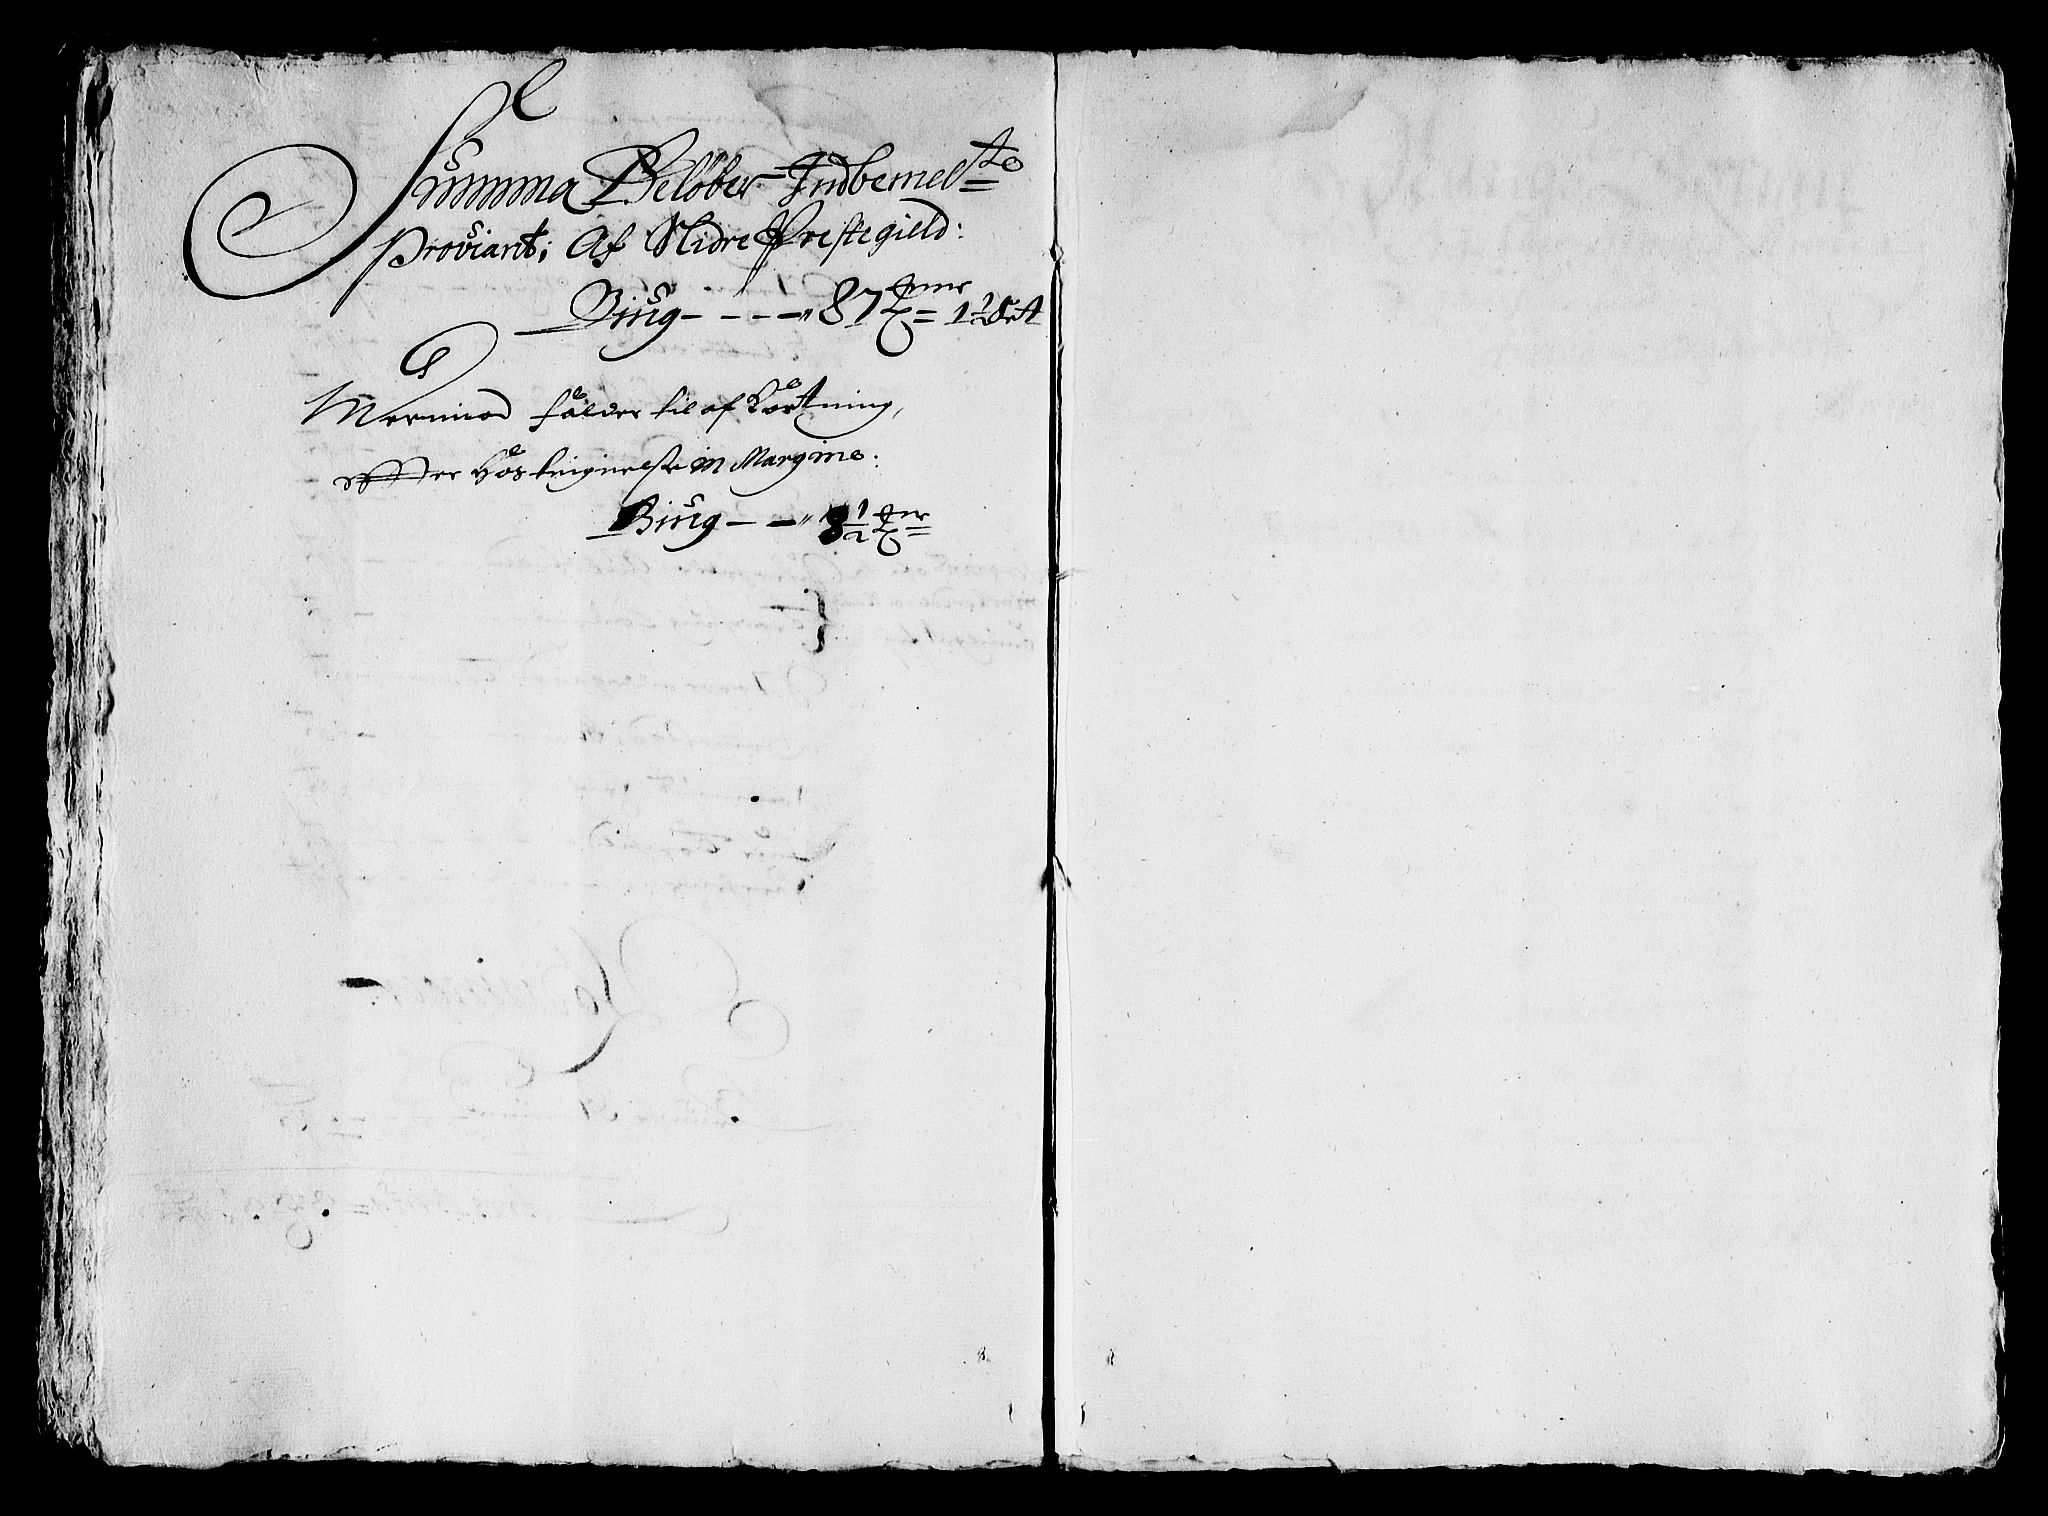 Summa Beløber Indbemelte
Proviant; Af Nidre Prestegield:
Biug - - - -" 87 Tønner 1½ Sett
Hermod falder til afkortning,
effter hos teignelse in Margine:
Biug - -" 8½ Tønr